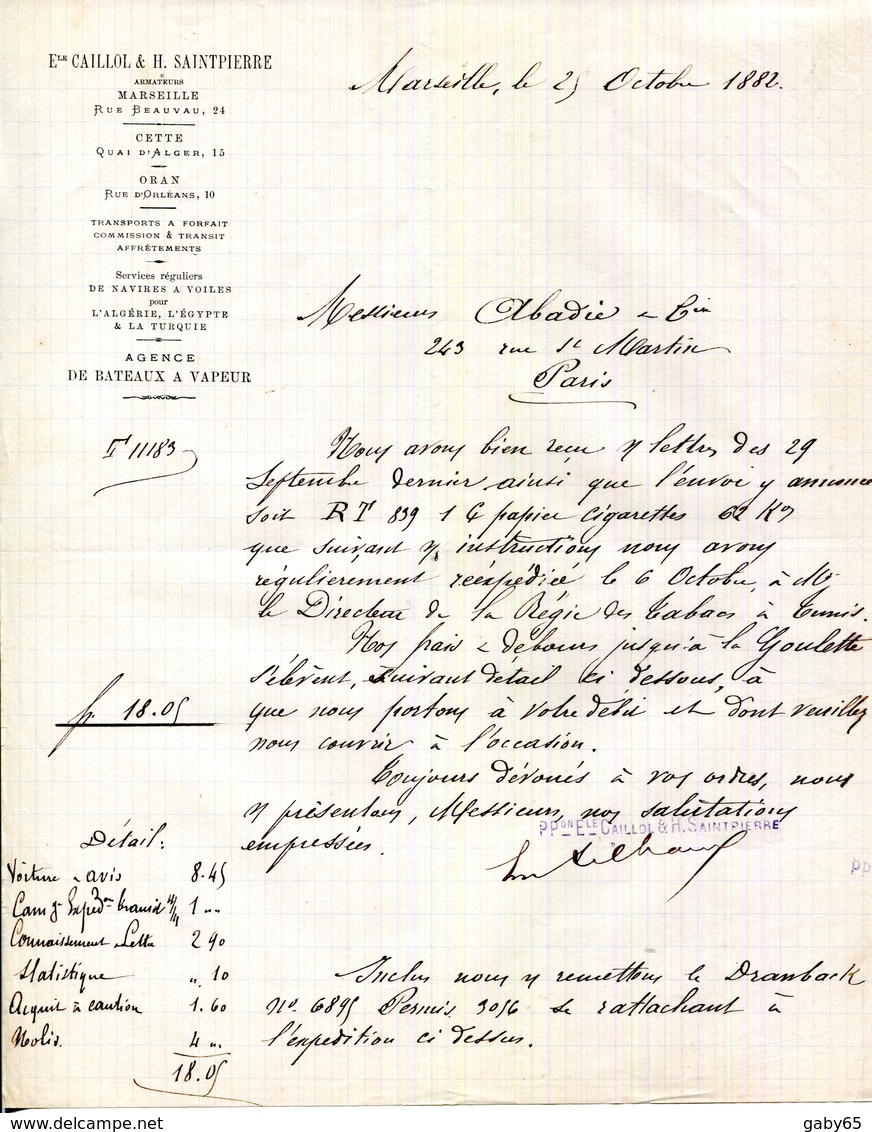 ELE CAILLOL & H. SAINTPIERRE
ARMATEURS
MARSEILLE
RUE BEAUVAU, 24
CETTE
QUAI D'ALGER, 15
ORAN
RUE D'ORLÉANS, 10
TRANSPORTS A FORFAIT
COMMISSION & TRANSIT
AFFRÈTEMENTS
Services réguliers
DE NAVIRES A VOILES
pour
L'ALGÉRIE, L'ÉGYPTE
& LA TURQUIE
AGENCE
DE BATEAUX A VAPEUR
Marseille, le 25 Octobre 1882.
Messieurs Abadie & Cie
243 rue St Martin
Paris
T 11183
Nous avons bien recu v/ lettres des 29
Septembre dernier ainsi que l'envoi y annoncé
soit RT 839 1 C papier cigarettes 62 Kos
que suivant v/ instructions nous avons
régulierement réexpédiée le 6 Octobre, à Mr
le Directeur de la Régie des Tabacs à Tunis.
Nos frais & debours jusqu'à la Goulette
s'élèvent, suivant détail ci dessous, à
fr. 18.05
que nous portons à votre débit et dont veuillez
nous couvrir à l'occasion.
Toujours dévoués à vos ordres, nous
v/ présentons, Messieurs, nos salutations
empressées.
PPON ELE CAILLOL & H. SAINTPIERRE
PP
Détail:
Voiture & avis 8.45
Cam ge Expedon transit 1 "
Connaissement & Lettre 2 90
Statistique " 10
Acquit à caution 1.60
Nolis. 4 "
18.05
Inclus nous v/ remettons le Drawback
No. 6895 Permis 3056 se rattachant à
l'expedition ci dessus.
gaby65